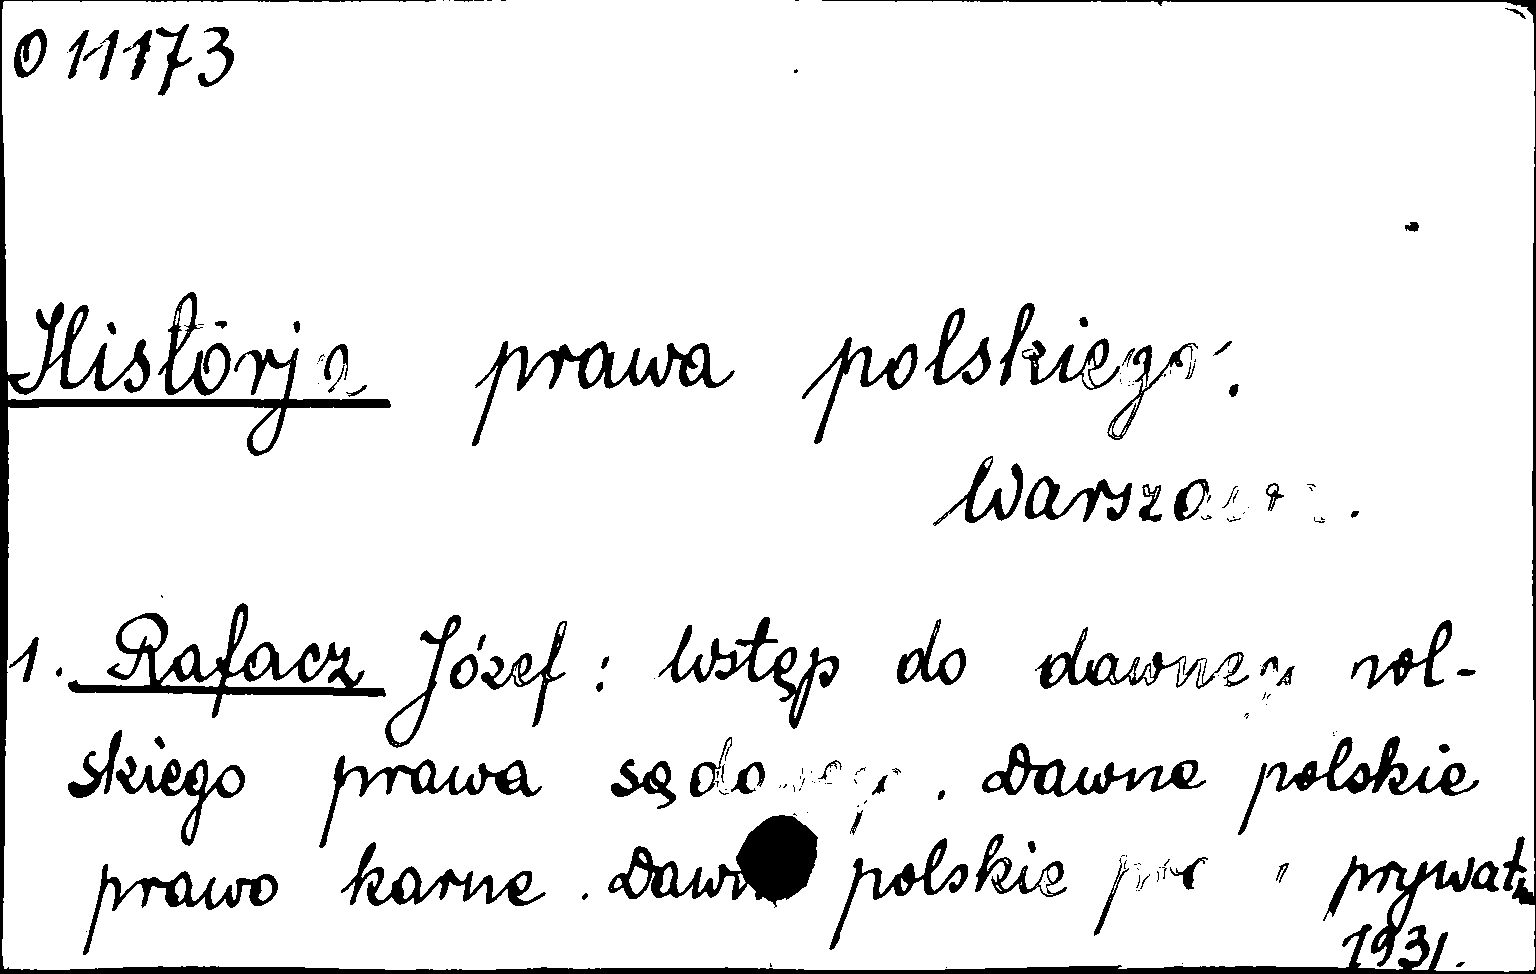 O 11173
Historja prawa polskiego.
Warszawa.
1. Rafacz Józef: Wstęp do dawnego pol-
skiego prawa sądowego. Dawne polskie
prawo karne. Dawne polskie prawo prywatn.
1931.